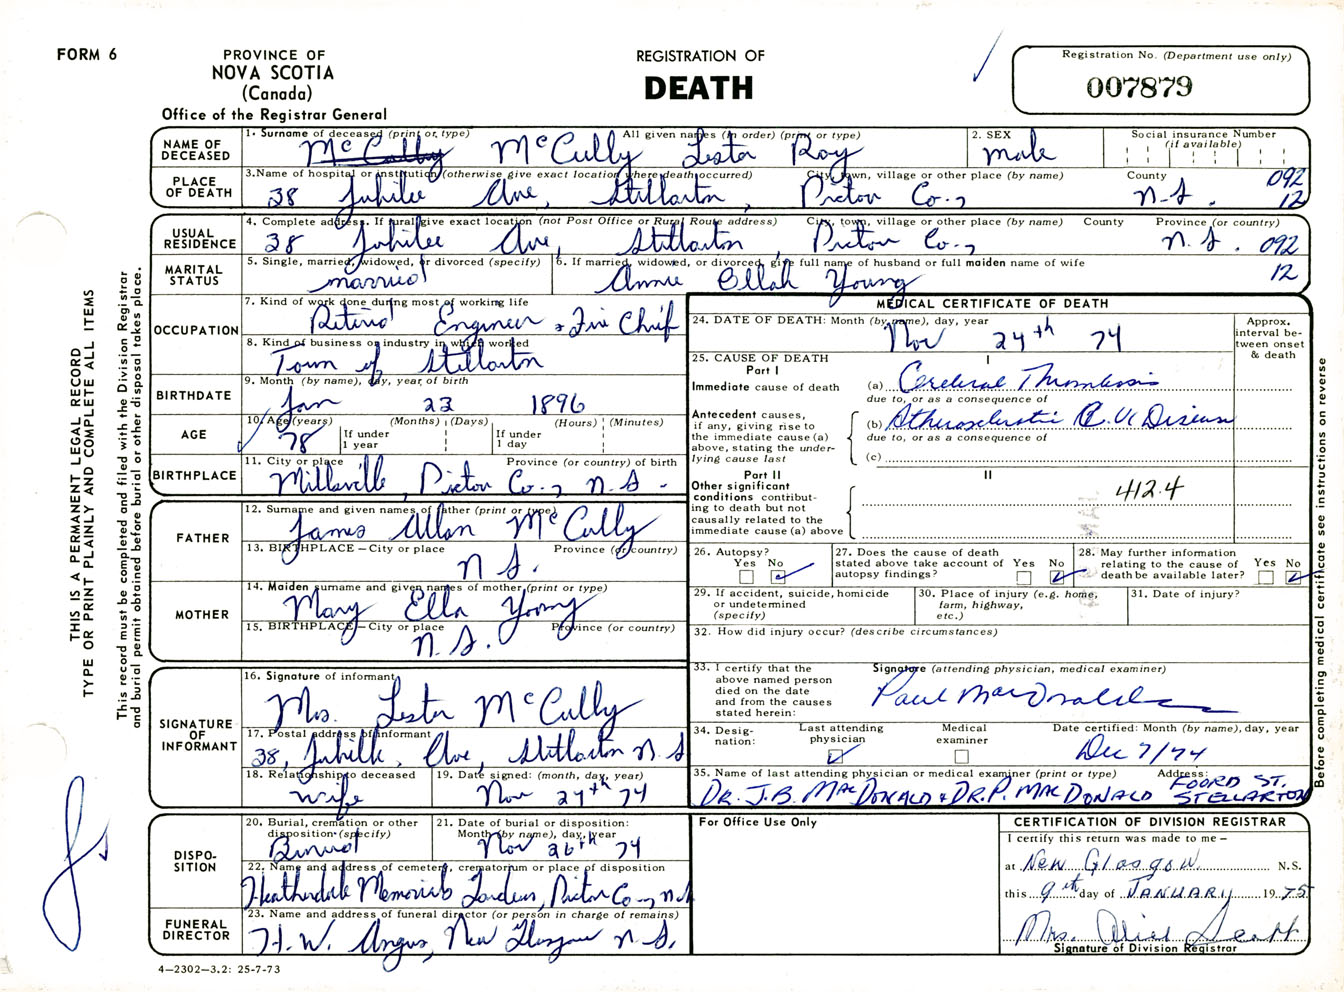 FORM 6
PROVINCE OF
NOVA SCOTIA
(Canada)
Office of the Registrar General
REGISTRATION OF
DEATH
Registration No. (Department use only)
007879
NAME OF DECEASED
1. Surname of deceased (print or type) All given names (in order) (print or type)
McCully McCully Lester Roy
2. SEX
male
Social insurance Number
(if available)
PLACE OF DEATH
3. Name of hospital or institution (otherwise give exact location where death occurred) City, town, village or other place (by name) County
38 Jubilee Ave, Stellarton, Pictou Co., N.S. 092
12
USUAL RESIDENCE
4. Complete address. If rural give exact location (not Post Office or Rural Route address) City, town, village or other place (by name) County Province (or country)
38 Jubilee Ave, Stellarton, Pictou Co., N.S. 092
12
MARITAL STATUS
5. Single, married, widowed, or divorced (specify)
married
6. If married, widowed, or divorced, give full name of husband or full maiden name of wife
Annie Ellah Young
OCCUPATION
7. Kind of work done during most of working life
Retired Engineer & Fire Chief
8. Kind of business or industry in which worked
Town of Stellarton
BIRTHDATE
9. Month (by name), day, year of birth
Jan 23 1896
AGE
10. Age (years) (Months) (Days) (Hours) (Minutes)
78 If under 1 year If under 1 day
BIRTHPLACE
11. City or place Province (or country) of birth
Millsville, Pictou Co., N.S.
FATHER
12. Surname and given names of father (print or type)
James Allan McCully
13. BIRTHPLACE – City or place Province (or country)
N.S.
MOTHER
14. Maiden surname and given names of mother (print or type)
Mary Ella Young
15. BIRTHPLACE – City or place Province (or country)
N.S.
SIGNATURE OF INFORMANT
16. Signature of informant
Mrs. Lester McCully
17. Postal address of informant
38, Jubilee Ave, Stellarton N.S
18. Relationship to deceased
wife
19. Date signed: (month, day, year)
Nov 24th 74
DISPOSITION
20. Burial, cremation or other disposition (specify)
Burial
21. Date of burial or disposition: Month (by name), day, year
Nov 26th 74
22. Name and address of cemetery, crematorium or place of disposition
Heatherdale Memorial Gardens, Pictou Co., N.S
FUNERAL DIRECTOR
23. Name and address of funeral director (or person in charge of remains)
H.W. Angus, New Glasgow N.S.
4–2302–3.2: 25-7-73
MEDICAL CERTIFICATE OF DEATH
24. DATE OF DEATH: Month (by name), day, year
Nov 24th 74
Approx. interval between onset & death
25. CAUSE OF DEATH
Part I
I
Immediate cause of death
(a) Cerebral Thrombosis
due to, or as a consequence of
Antecedent causes, if any, giving rise to the immediate cause (a) above, stating the underlying cause last
(b) Atherosclerotic C.V. Disease
due to, or as a consequence of
(c)
Part II
II
Other significant conditions contributing to death but not causally related to the immediate cause (a) above
412.4
26. Autopsy?
Yes No
27. Does the cause of death stated above take account of autopsy findings?
Yes No
28. May further information relating to the cause of death be available later?
Yes No
29. If accident, suicide, homicide or undetermined (specify)
30. Place of injury (e.g. home, farm, highway, etc.)
31. Date of injury?
32. How did injury occur? (describe circumstances)
33. I certify that the above named person died on the date and from the causes stated herein:
Signature (attending physician, medical examiner)
Paul MacDonald
34. Designation:
Last attending physician
Medical examiner
Date certified: Month (by name), day, year
Dec 7/74
35. Name of last attending physician or medical examiner (print or type) Address:
DR. J.B. MACDONALD & DR. P. MACDONALD FOORD ST. STELLARTON
For Office Use Only
CERTIFICATION OF DIVISION REGISTRAR
I certify this return was made to me –
at New Glasgow N.S.
this 9th day of JANUARY 1975
Mrs. Alice Scott
Signature of Division Registrar
THIS IS A PERMANENT LEGAL RECORD
TYPE OR PRINT PLAINLY AND COMPLETE ALL ITEMS
This record must be completed and filed with the Division Registrar
and burial permit obtained before burial or other disposal takes place.
Before completing medical certificate see instructions on reverse